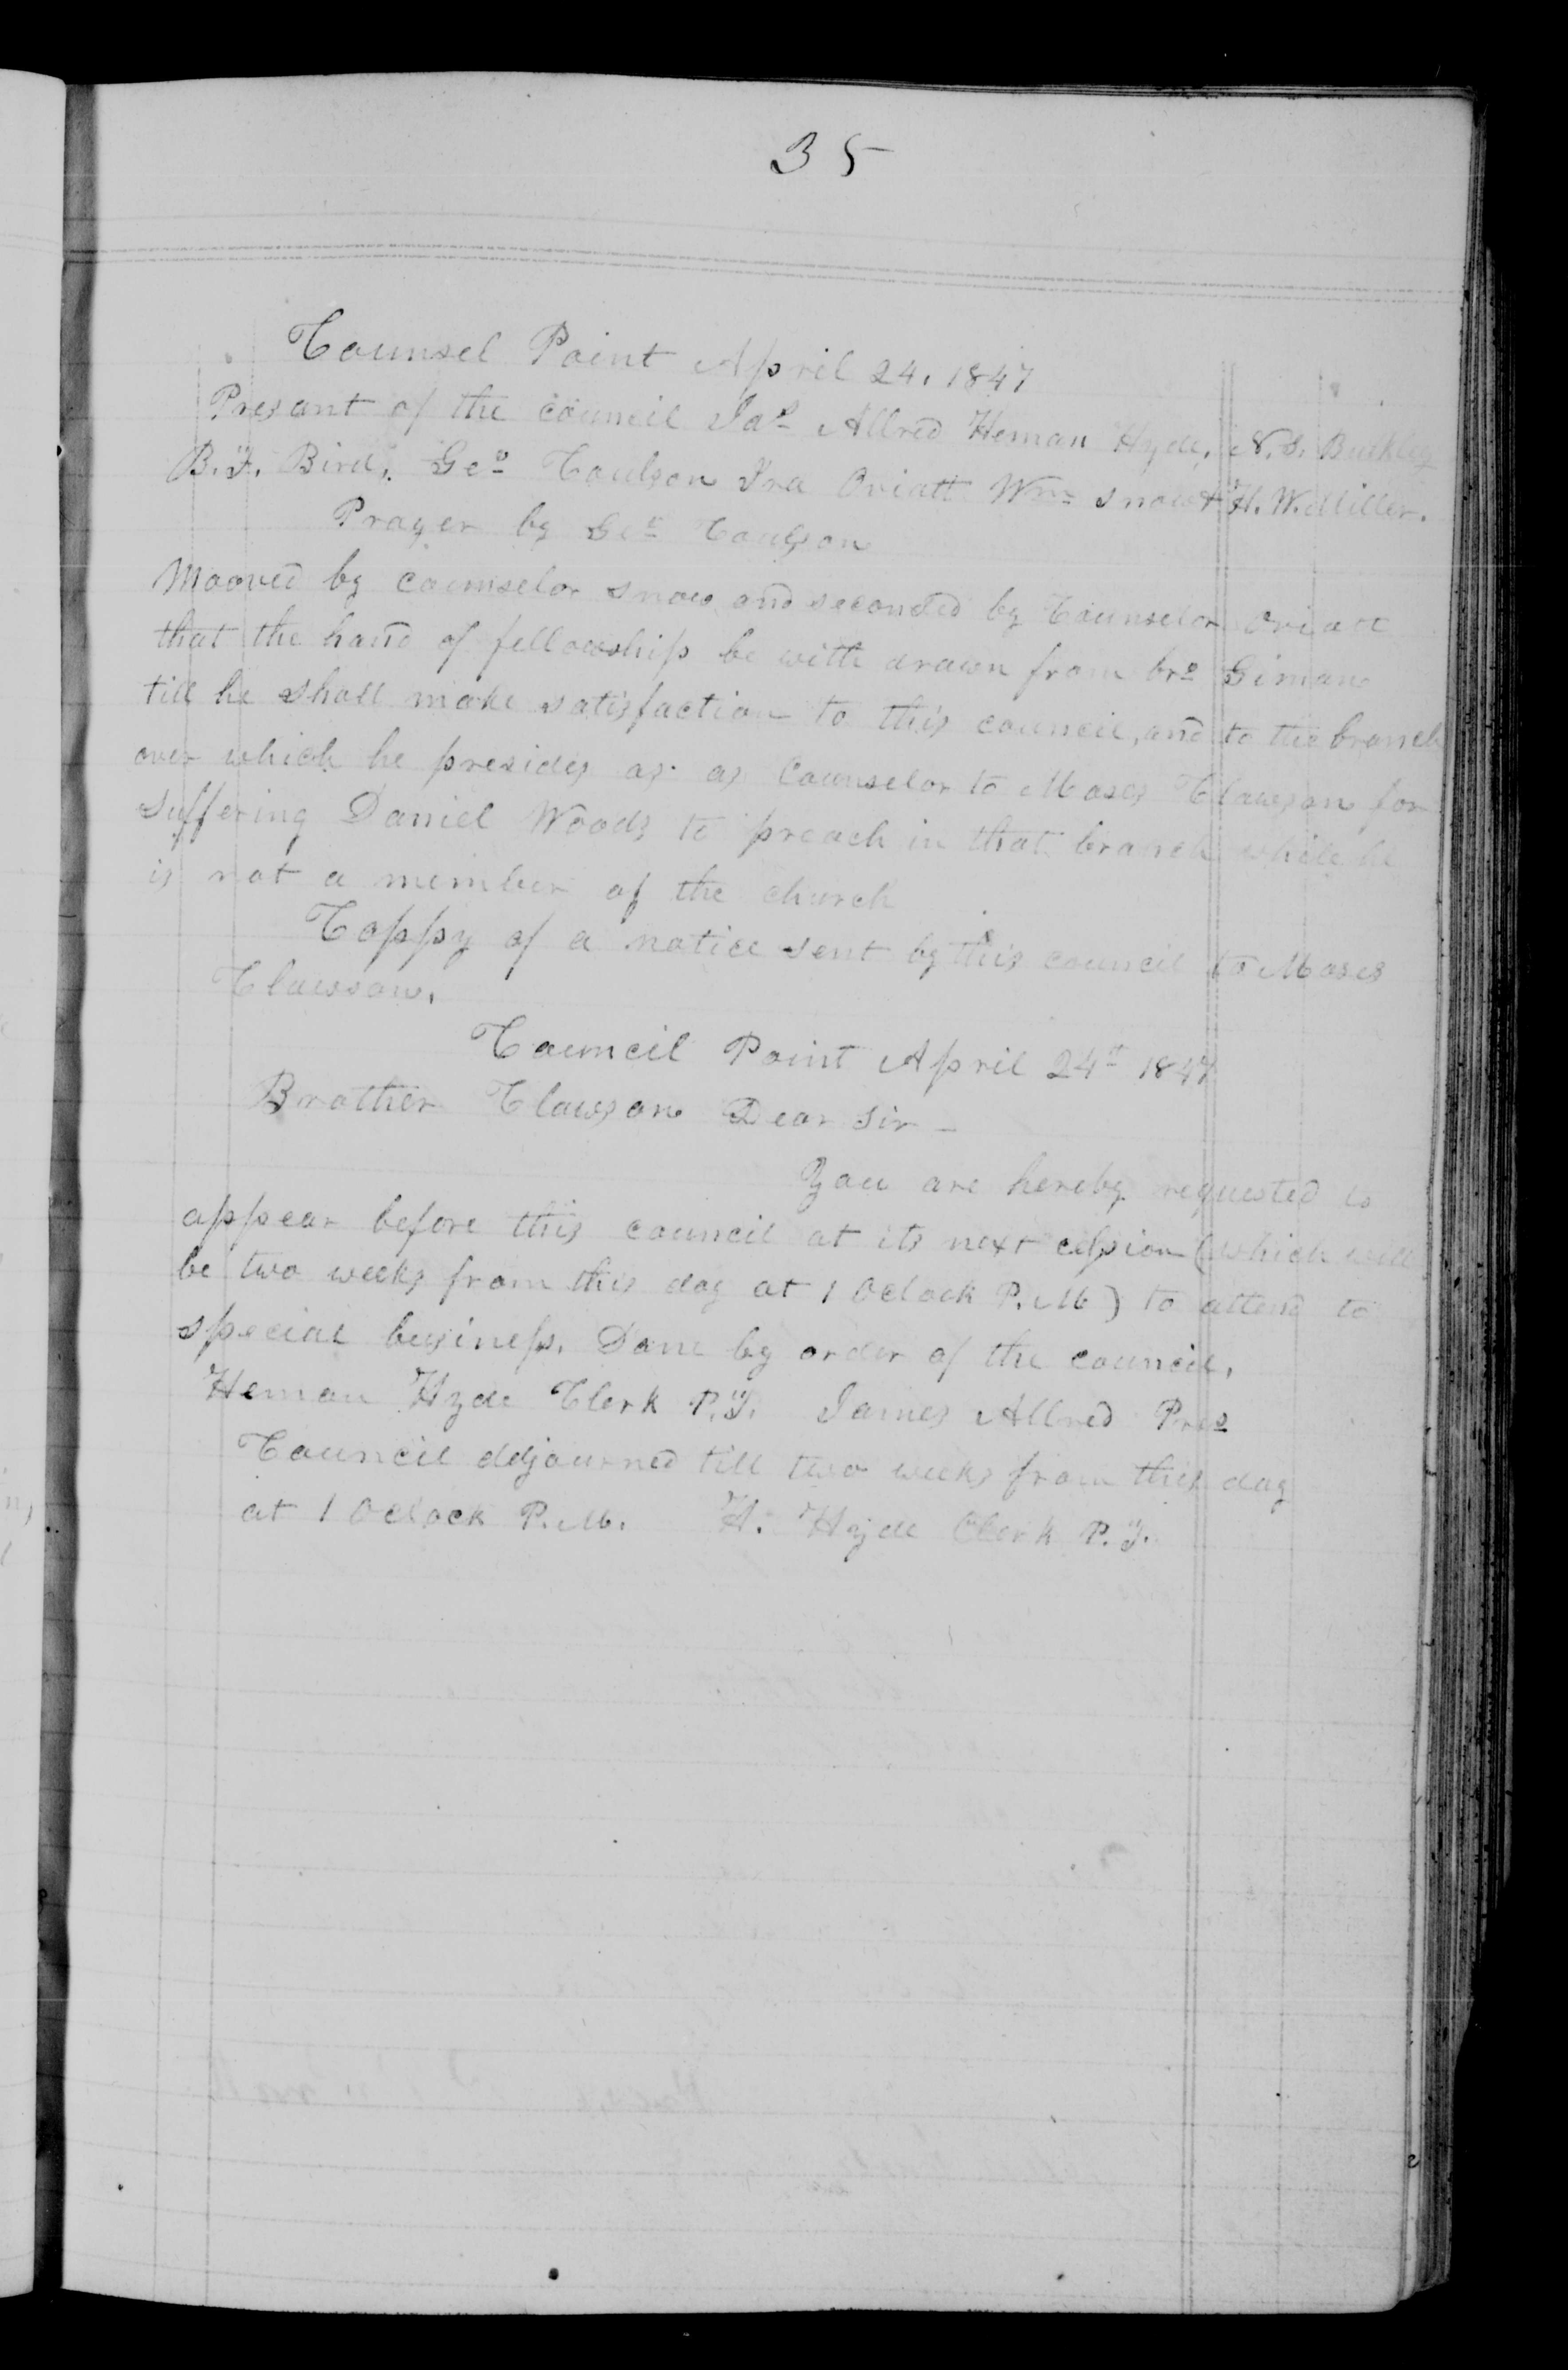 35
Counsel Point April 24, 1847
Presant of the council Jas Allred Heman Hyde, N. S. Buckley
B. F. Bird, Geo Coulson Ira Oviatt Wm Snow & H. W. Miller.
Prayer by Geo Coulson
Mooved by counselor snow and seconded by Counselor Oviatt
that the hand of fellowship be with drawn from bro Giman
till he shall make satisfaction to this council, and to the branch
over which he presides as as Counselor to Moses Clawson for
suffering Daniel Woods to preach in that branch while he
is not a member of the church
Coppy of a notice sent by this council to Moses
Clawson.
Council Point April 24t 1847
Brother Clawson Dear Sir –
You are hereby requested to
appear before this council at its next (which will
be two weeks from this day at 1 Oclock P. M) to attend to
special business. Done by order of the council,
Heman Hyde Clerk P. T. James Allred Pres
Council adjourned till two weeks from this day
at 1 Oclock P. M. H. Hyde Clerk P. T.